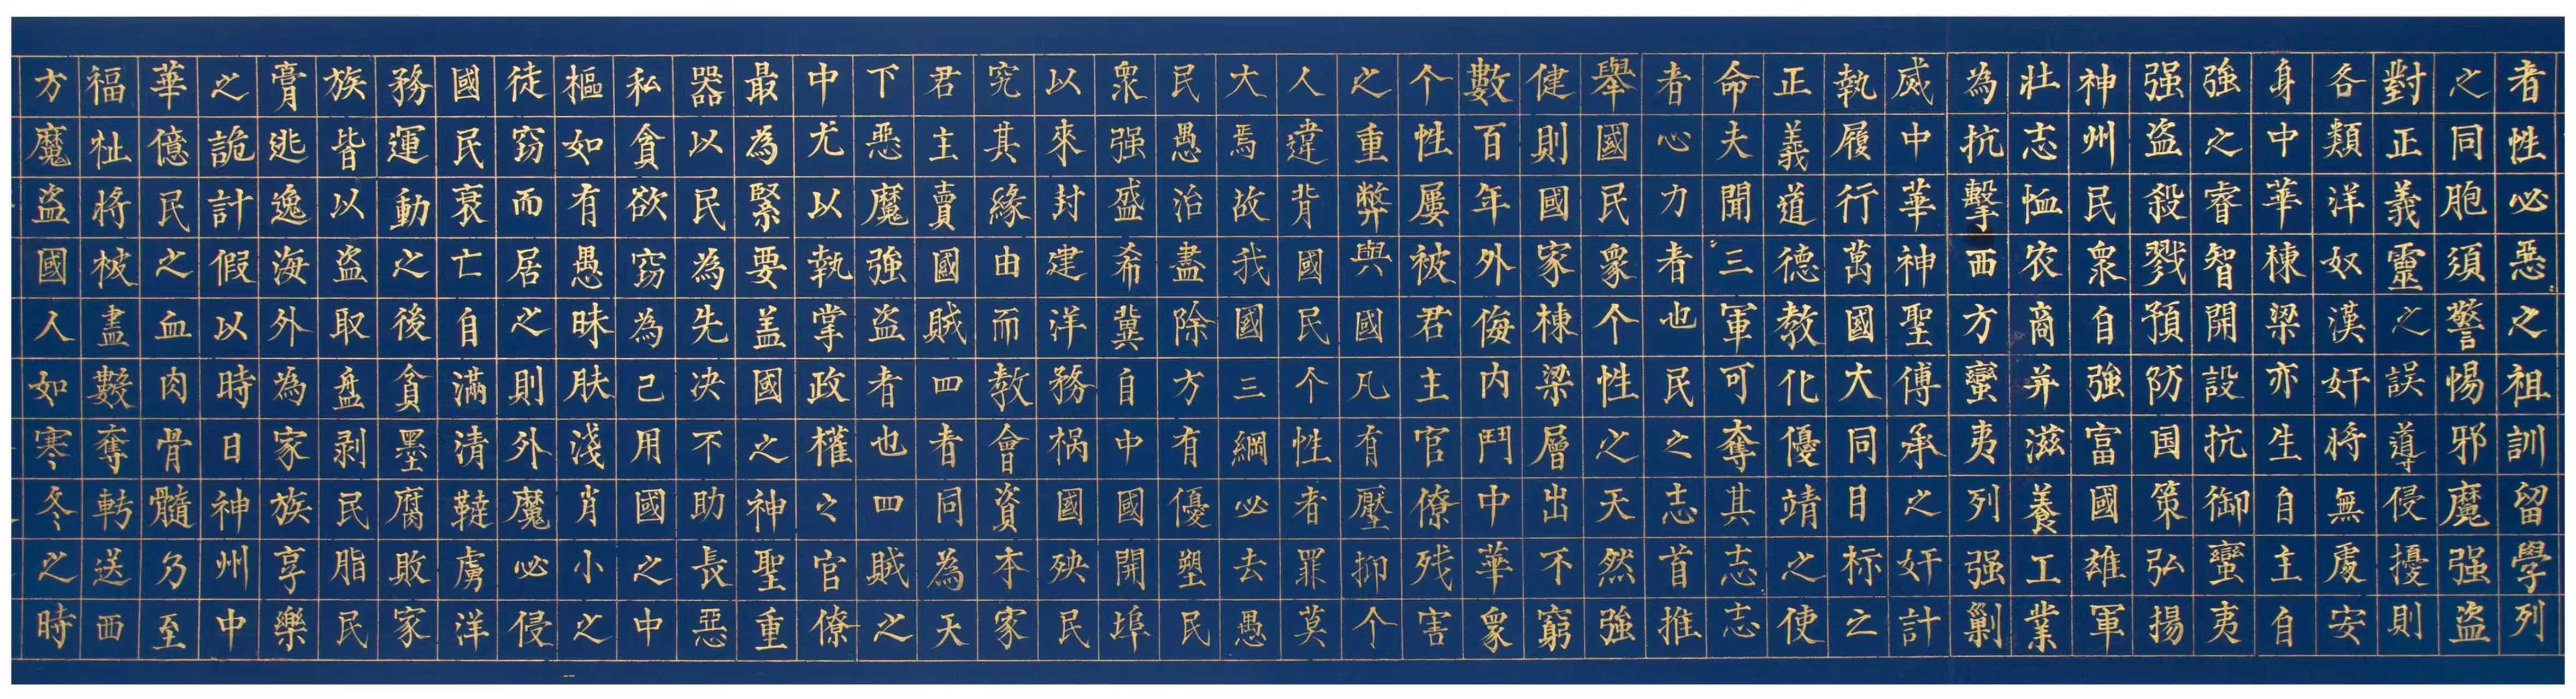 者性必惡之祖訓留學列
之同胞須警惕邪魔强盜
對正義靈之誤導侵擾則
各類洋奴漢奸將無處安
身中華棟梁亦生自主自
強之睿智開設抗御蠻夷
强盜殺戮預防国策弘揚
神州民衆自強富國雄軍
壮志恤农商并滋養工業
為抗擊西方蠻夷列强剿
威中華神聖傅承之奸計
執履行萬國大同目标之
正義道德教化優靖之使
命夫聞三軍可奪其志志
者心力者也民之志首推
舉國民衆个性之天然強
健則國家棟梁層出不窮
數百年外侮内鬥中華衆
个性屢被君主官僚残害
之重弊與國凡有壓抑个
人違背國民个性者罪莫
大焉故我國三綱必去愚
民愚治盡除方有優塑民
衆强盛希冀自中國開埠
以來封建洋務祸國殃民
究其緣由而教會資本家
君主賣國賊四者同為天
下惡魔強盗者也四賊之
中尤以執掌政權之官僚
最為緊要盖國之神聖重
器以民為先决不助長惡
私貪欲窃為己用國之中
樞如有愚昧肤淺肖小之
徒窃而居之則外魔必侵
國民衰亡自滿清韃虜洋
務運動之後貪墨腐敗家
族皆以盗取盘剥民脂民
膏逃逸海外為家族享樂
之詭計假以時日神州中
華億民之血肉骨髓乃至
福祉將被盡數奪轉送西
方魔盗國人如寒冬之時